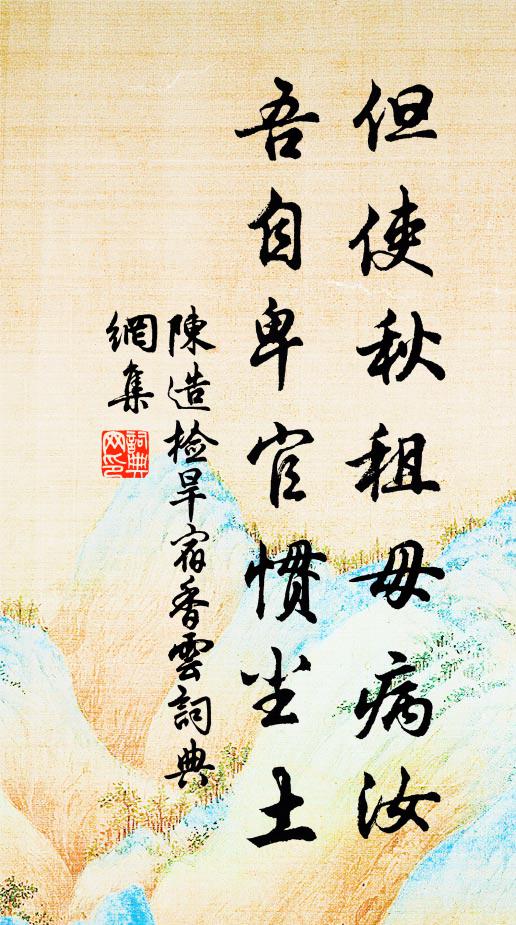 但使秋租毋病汝
吾自卑官惯尘土
陳造检旱宿香雲詞典
網集
詞典
网印